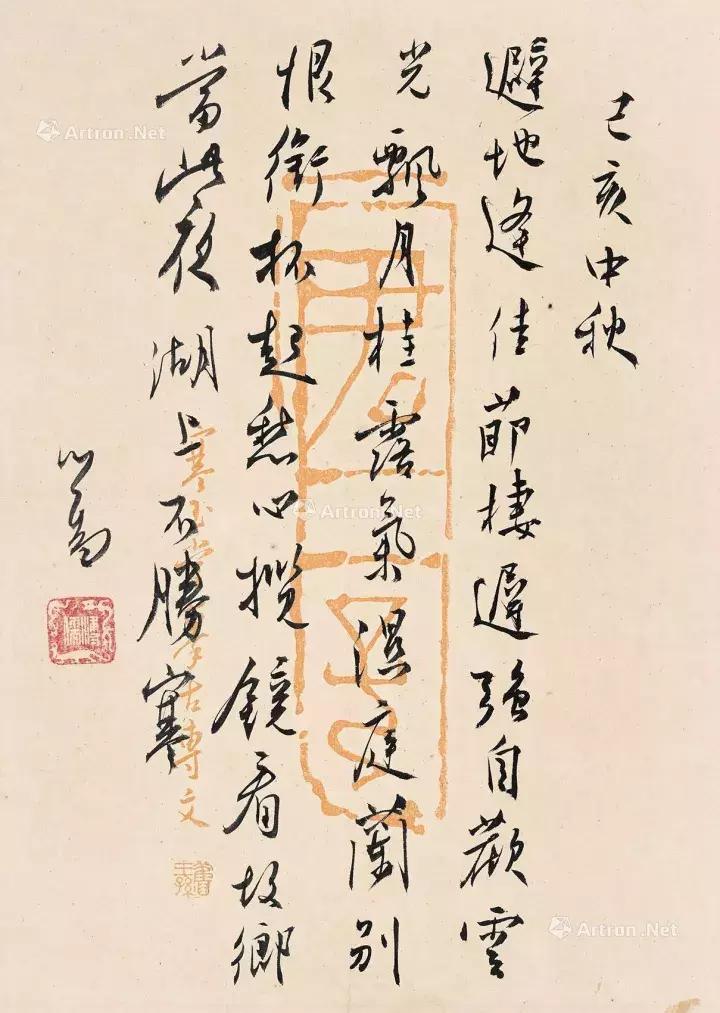 己亥中秋
避地逢佳節棲遲強自歡雲
光飄月桂露氣濕庭蘭別
恨銜杯起愁心攬鏡看故鄉
當此夜湖上不勝寒
心畬
溥儒
寒玉堂
古專文
Artron.Net
Artron.Net
Artron.Net